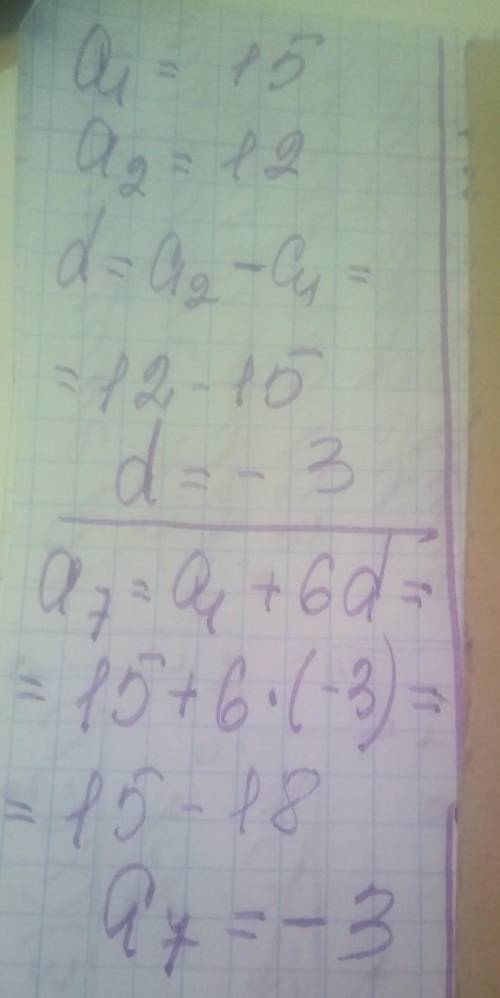 a₁ = 15
a₂ = 12
d = a₂ - a₁ =
= 12 - 15
d = - 3
a₇ = a₁ + 6d =
= 15 + 6 · (-3) =
= 15 - 18
a₇ = - 3